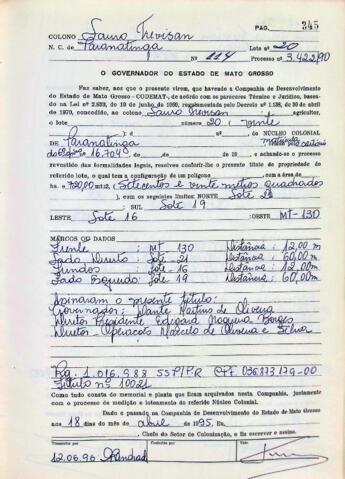 PAG. 345
COLONO Lauro Trevisan Lote nº 20
N. C. de Paranatinga
Nº 114 Processo nº 3.422/90
O GOVERNADOR DO ESTADO DE MATO GROSSO
Faz saber, aos que o presente virem, que havendo a Companhia de Desenvolvimento
do Estado de Mato Grosso - CODEMAT, de acôrdo com os pareceres Técnico e Jurídico, baseado
na Lei nº 2.833, de 10 de junho de 1969, regulamentada pelo Decreto nº 1.138, de 30 de abril
de 1970, concedido, ao colono Lauro Trevisan
o lote, número 20 ( vinte
) do NÚCLEO COLONIAL
DE Paranatinga matrícula
16.704 de de 19 , e achando-se o processo
revestido das formalidades legais, resolveu conferir-lhe o presente título de propriedade do
referido lote, o qual tem a configuração de um polígono com a área de
hs. 720,00 mt2 (Setecentos e vinte metros quadrados
), com os seguintes limites: NORTE Lote 21
; SUL Lote 19
LESTE Lote 16 ; OESTE MT-130
MARCOS OU DADOS
Frente : MT 130 Distância : 12,00 m
Lado Direito : Lote - 21 Distância : 60,00 m
Fundos : Lote - 16 Distância : 12,00 m
Lado Esquerdo : Lote 19 Distância : 60,00 m
Assinaram o presente título:
Governador: Dante Martins de Oliveira
Diretor Presidente Edgard Nogueira Borges
Diretor Operações Marcelo de Oliveira e Silva
Rg. 1.016.988 SSP/PR CPF 036.873.179-00
Título nº 10021
Como tudo consta do memorial e planta que ficam arquivados nesta Companhia, juntamente
com o processo de medição e loteamento do referido Núcleo Colonial.
Dado e passado na Companhia de Desenvolvimento do Estado de Mato Grosso
aos 18 dias do mês de abril de 1995. Eu,
Chefe do Setor de Colonização, o fiz escrever e assino.
12.06.96